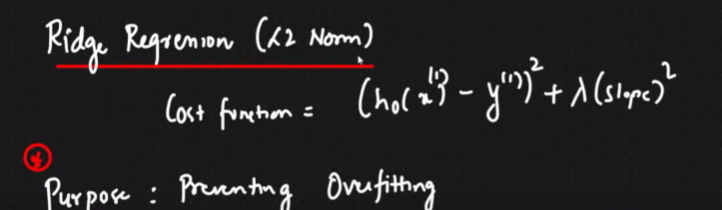 Ridge Regression (L2 Norm)
Cost function = (hθ(x⁽ⁱ⁾) - y⁽ⁱ⁾)² + λ(slope)²
Purpose : Preventing Overfitting